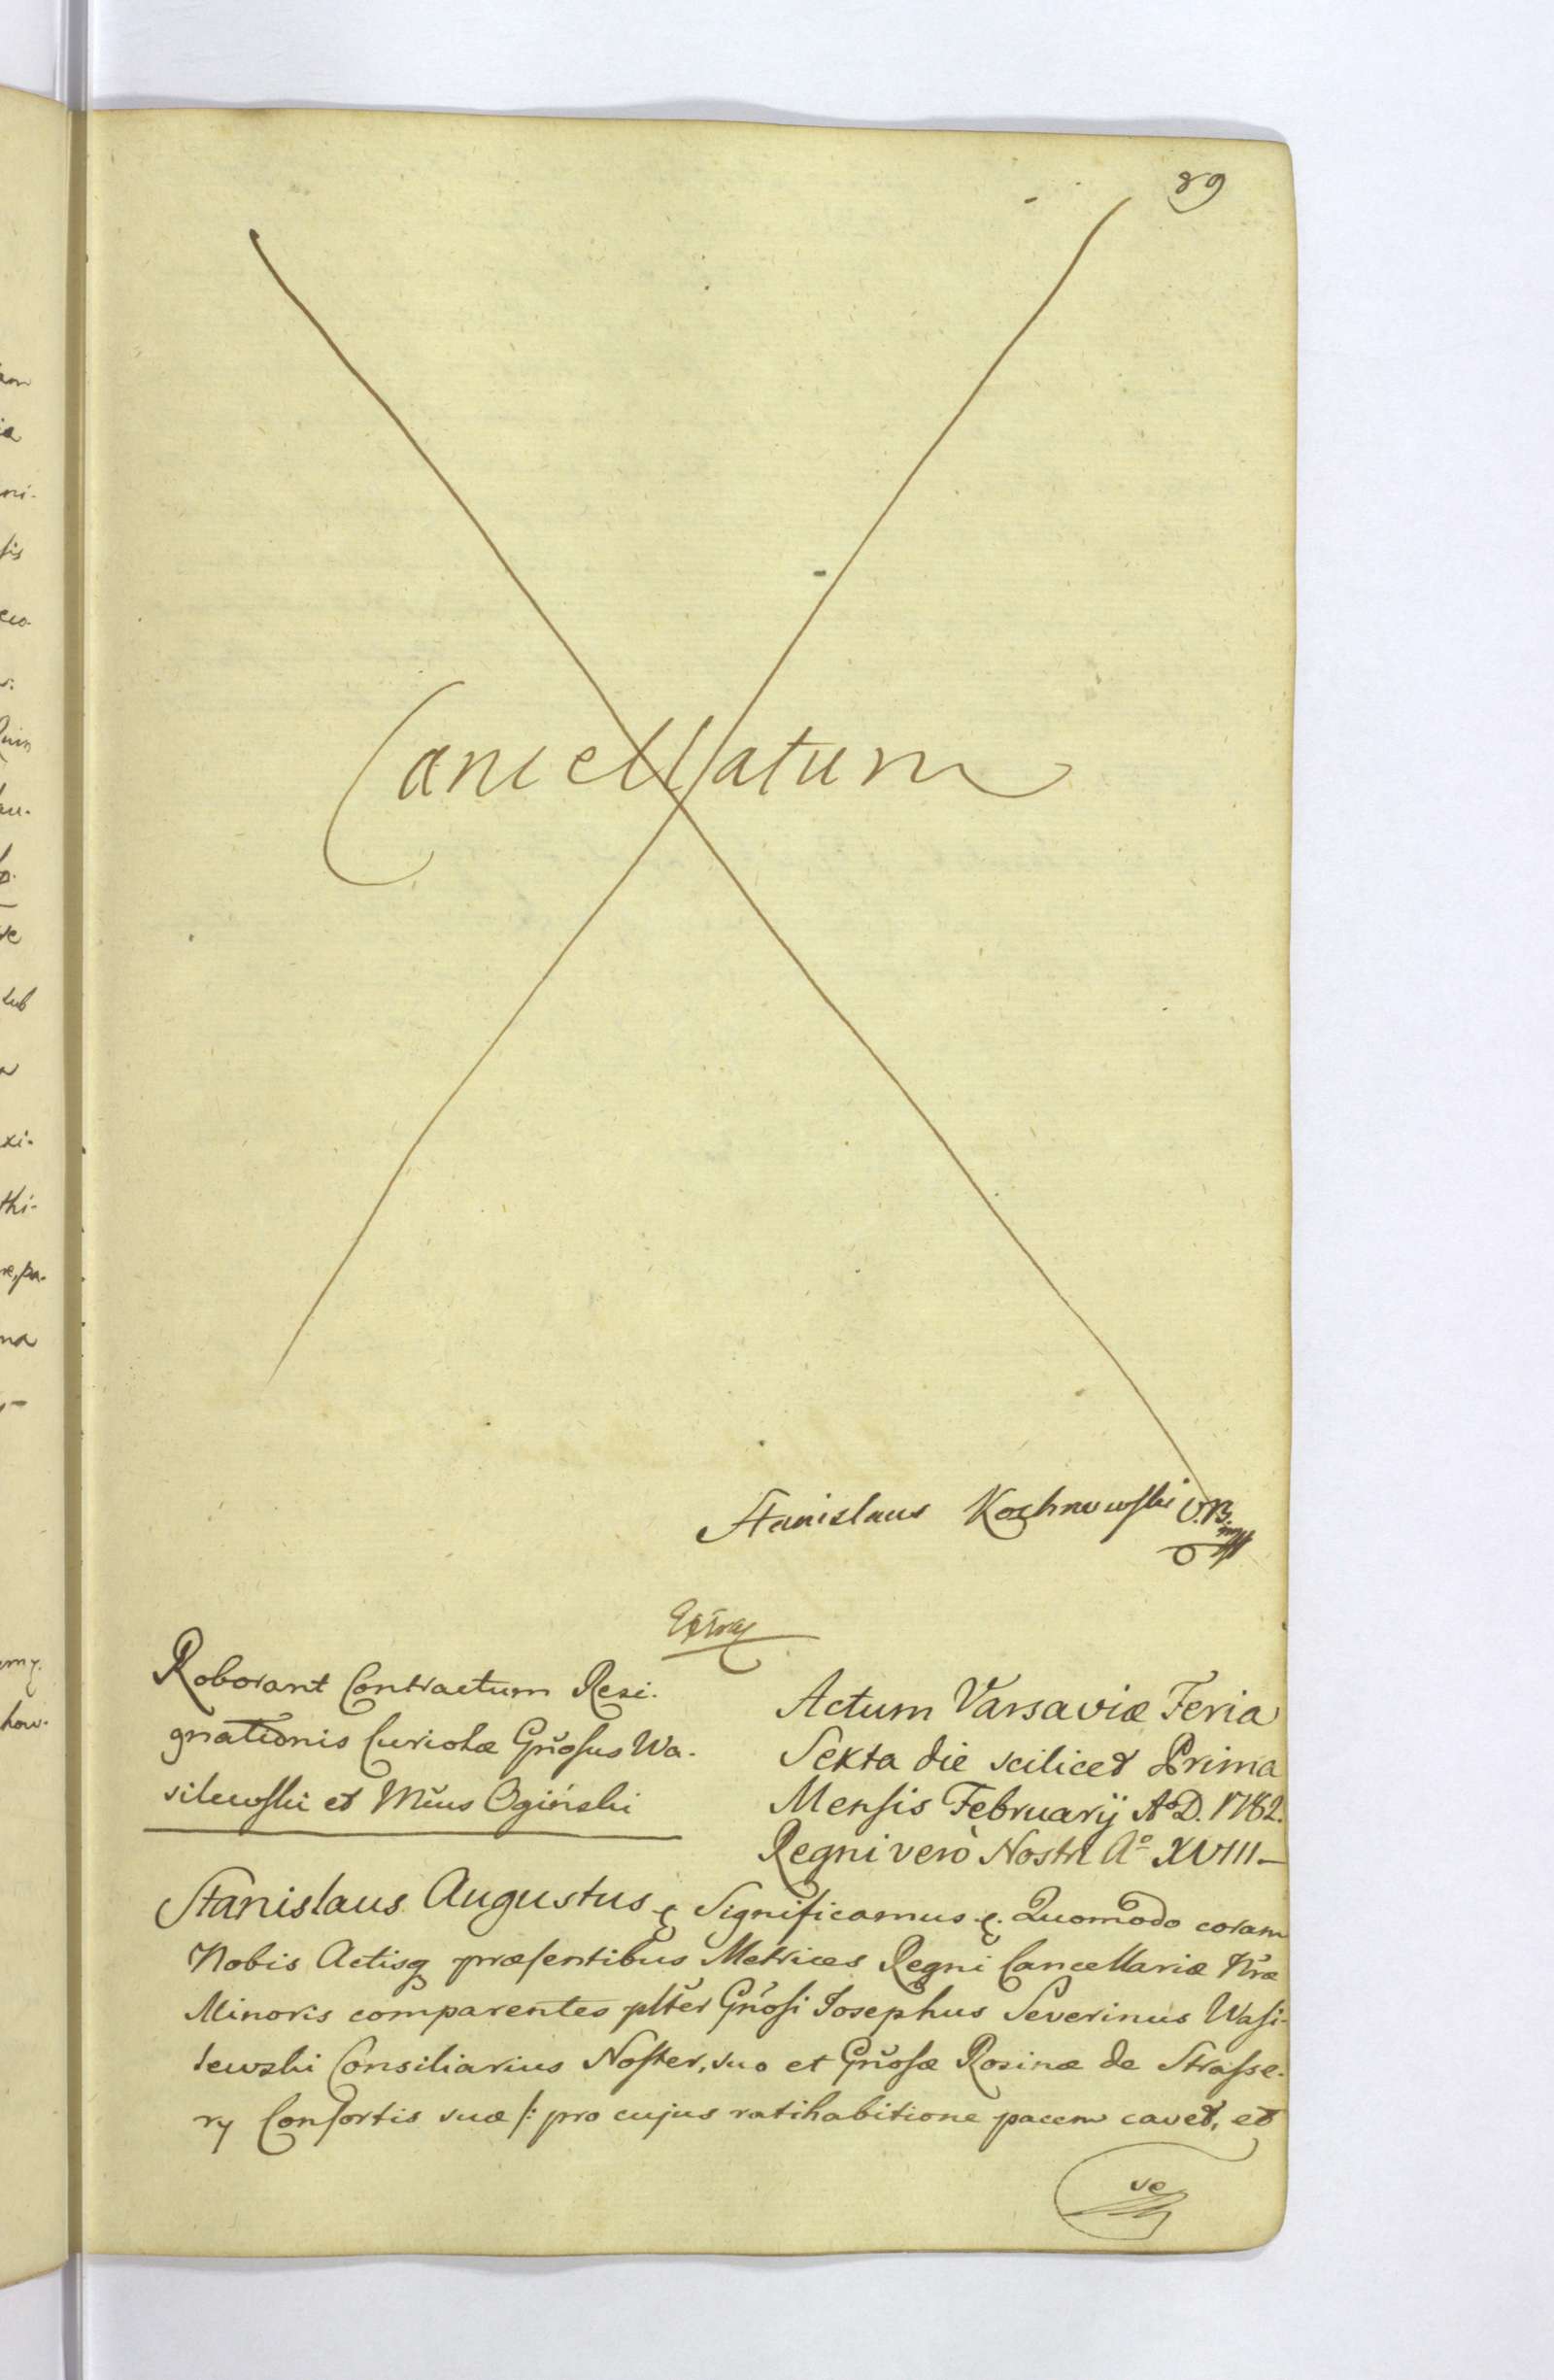 89
Cancellatum
Stanislaus Kochnowski V.B.
Extra
Roborant Contractum Resi-
gnationis Curiolæ Gnosus Wa-
silewski et Mcus Ogiński
Actum Varsaviæ Feria
Sexta die scilicet Prima
Mensis Februarij Ao D. 1782.
Regni verò Nostri Aº XVIII –
Stanislaus Augustus & Significamus &. Quomodo coram
Nobis Actisq præsentibus Metrices Regni Cancellariæ Nræ
Minoris comparentes plter Gnosi Josephus Severinus Wasi-
lewski Consiliarius Noster, suo et Gnosæ Rosinæ de Strasse-
ry Consortis suæ /: pro cujus ratihabitione pacem cavet, et
ve